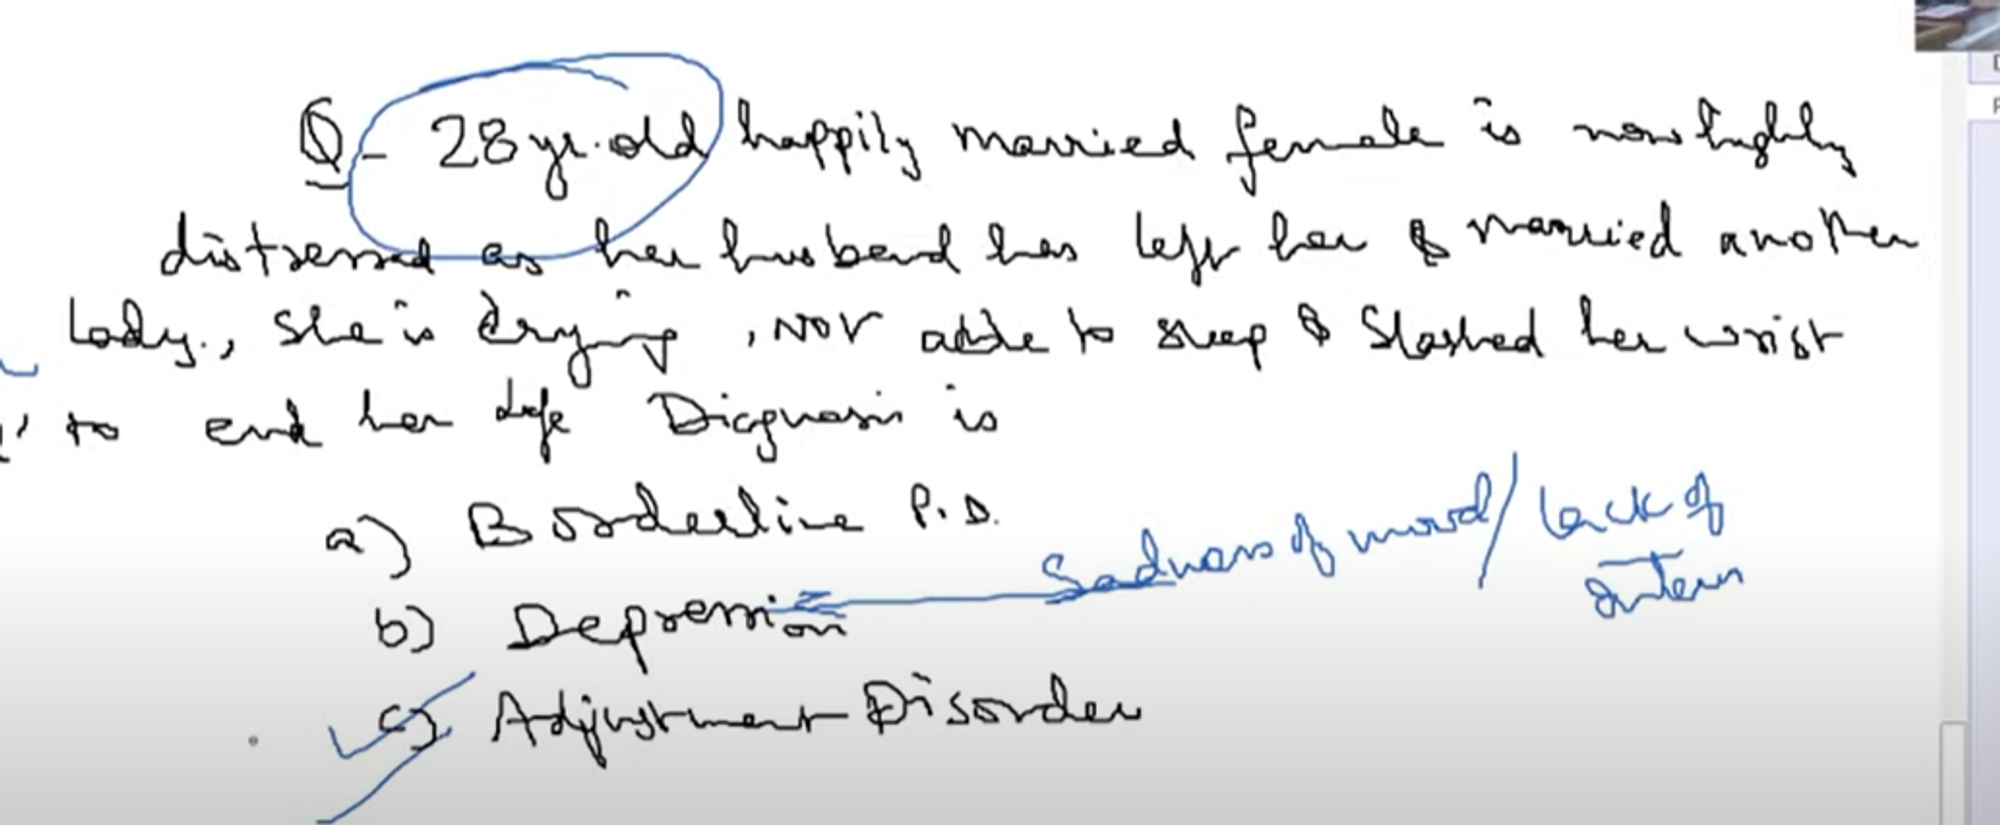 Q- 28 yr. old happily married female is now highly
distressed as her husband has left her & married another
lady., she is crying, NOT able to sleep & slashed her wrist
to end her life Diagnosis is
a) Borderline P.D.
b) Depression
Sadness of mood/ lack of
c) Adjustment Disorder